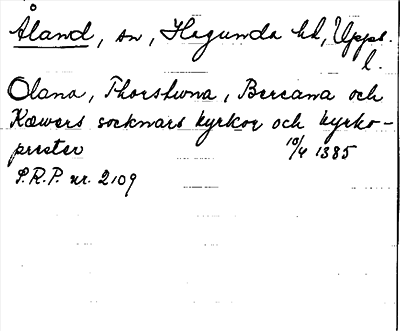 Åland, sn, Hagunda hd, Uppl.
l.
Olana, Thorstuna, Bercawa och
Kæwers socknars kyrkor och kyrko-
prester 10/4 1385
S.R.P. nr. 2109